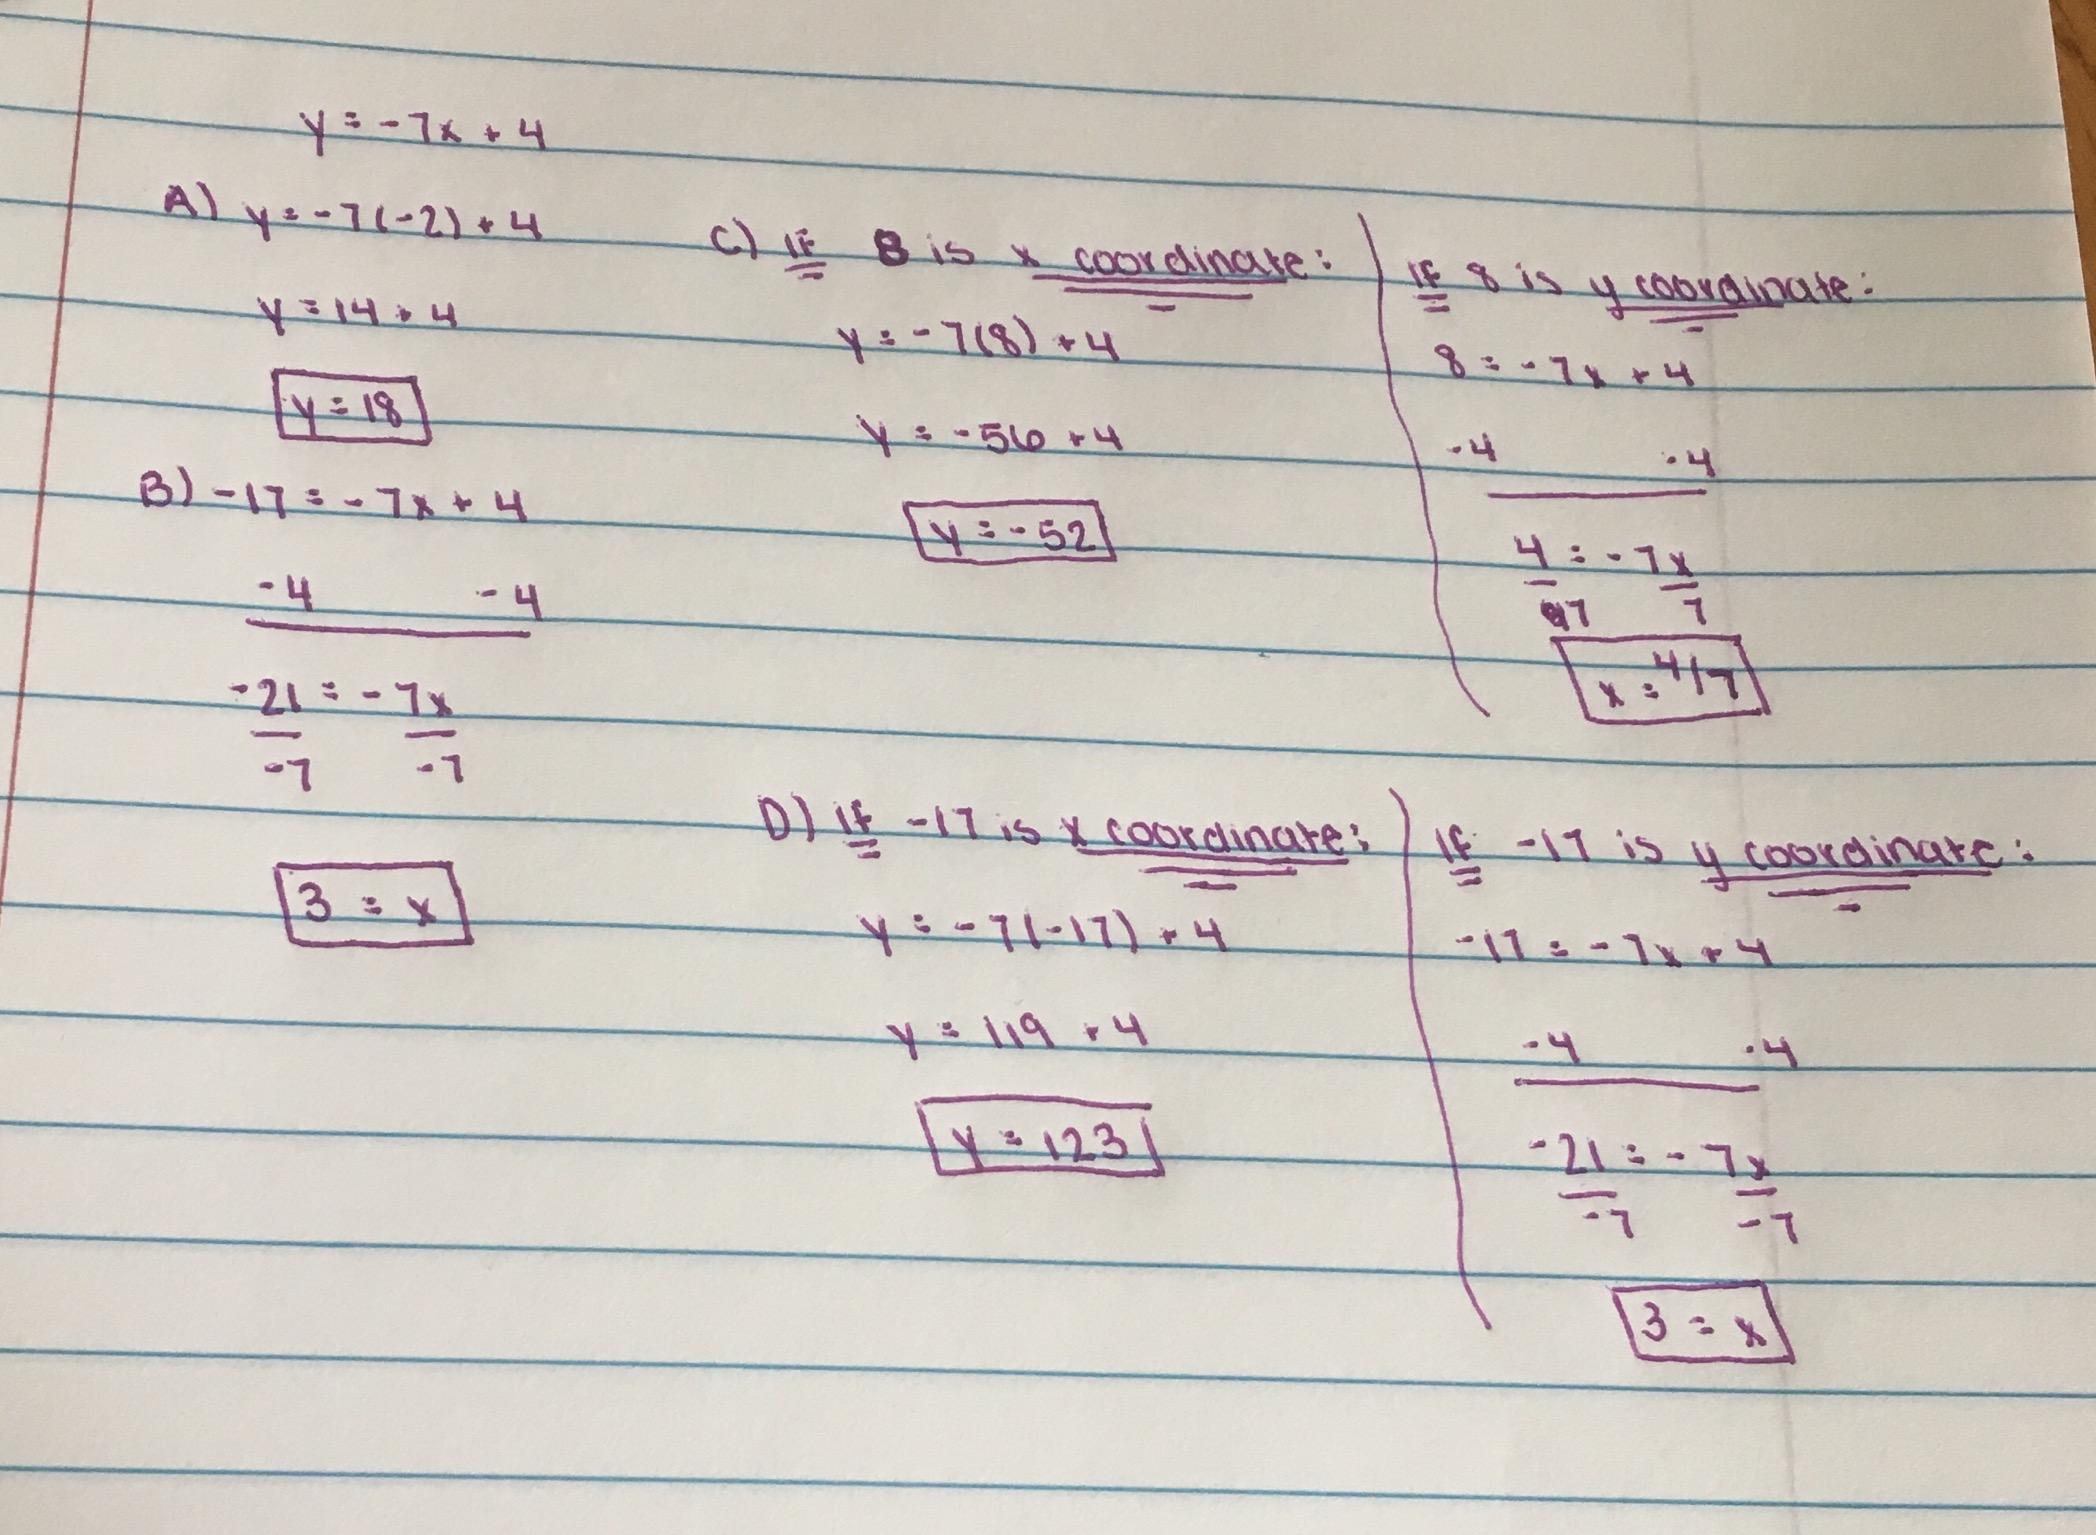 y = -7x + 4
A) y = -7(-2) + 4
y = 14 + 4
y = 18
B) -17 = -7x + 4
-4 -4
-21 = -7x
-7 -7
3 = x
C) If 8 is x coordinate:
y = -7(8) + 4
y = -56 + 4
y = -52
If 8 is y coordinate:
8 = -7x + 4
-4 -4
4 = -7x
7 7
x = 4/7
D) If -17 is x coordinate:
y = -7(-17) + 4
y = 119 + 4
y = 123
If -17 is y coordinate:
-17 = -7x + 4
-4 -4
-21 = -7x
-7 -7
3 = x